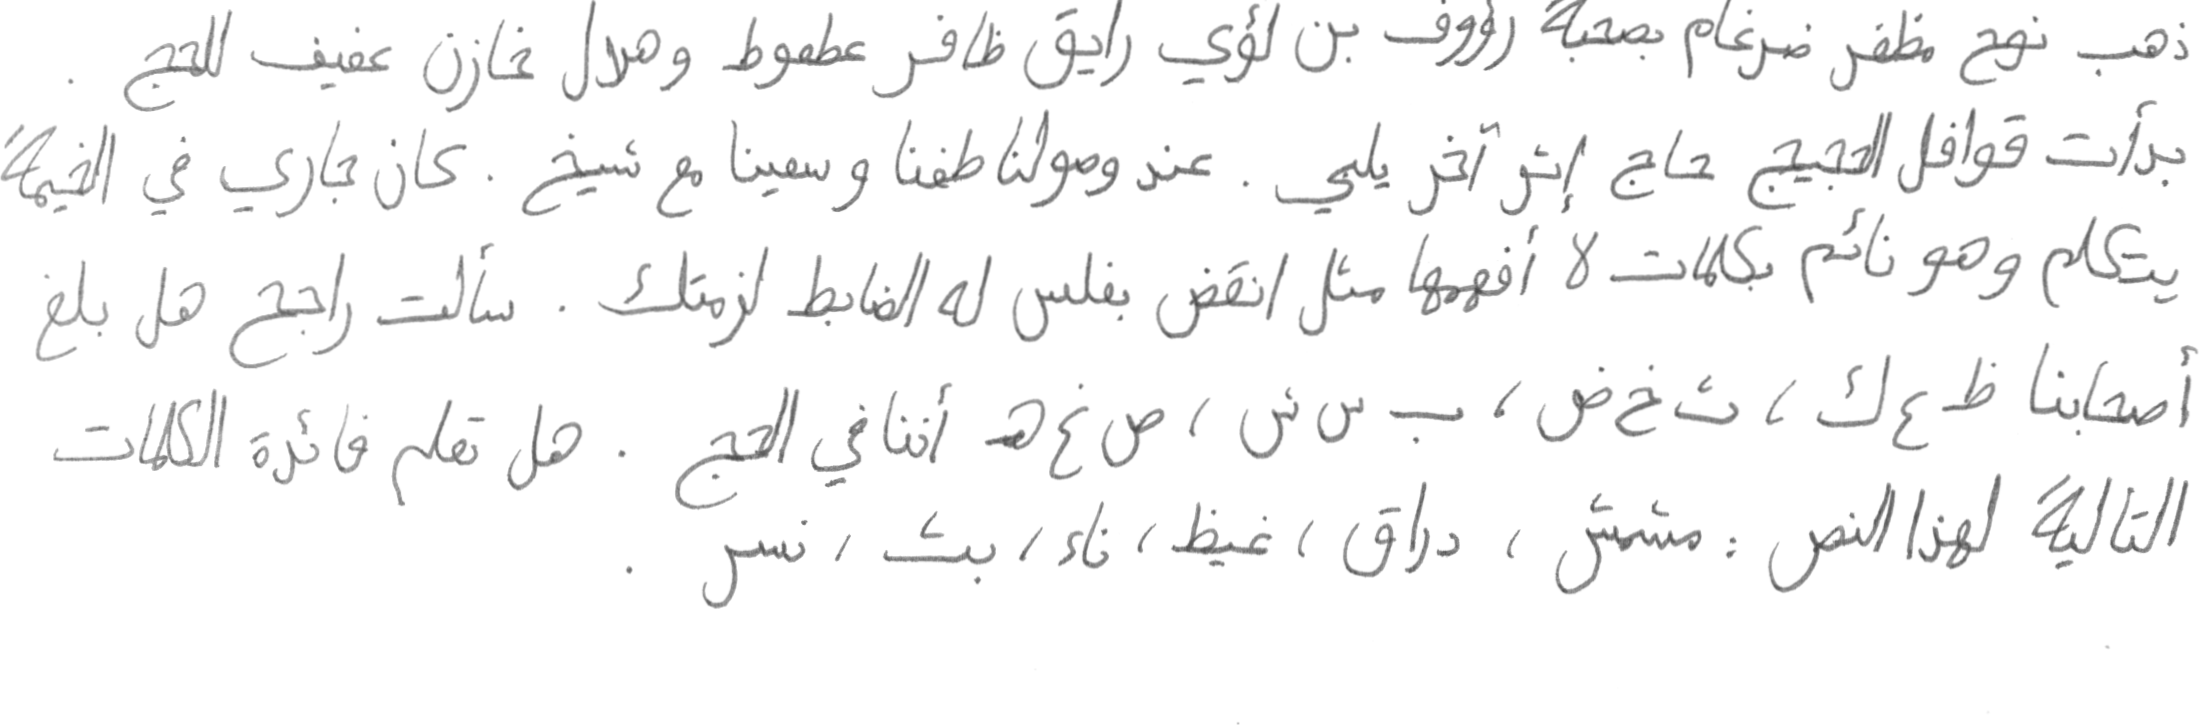 ذهب نوح مظفر ضرغام بصحبة رؤوف بن لؤي رايق ظافر عطعوط وهلال خازن عفيف للحج .
بدأت قوافل الحجيج حاج إثر آخر يلبي . عند وصولنا طفنا وسعينا مع شيخ . كان جاري في الخيمة
يتكلم وهو نائم بكلمات لا أفهمها مثل انقض بفلس له الضابط لزمتك . سألت راجح هل بلغ
أصحابنا ظ ع ك ، ث خ ض ، ب س ش ، ص غ هـ أننا في الحج . هل تعلم فائدة الكلمات
التالية لهذا النص : مشمش ، دراق ، غيظ ، ناء ، بث ، نسر .